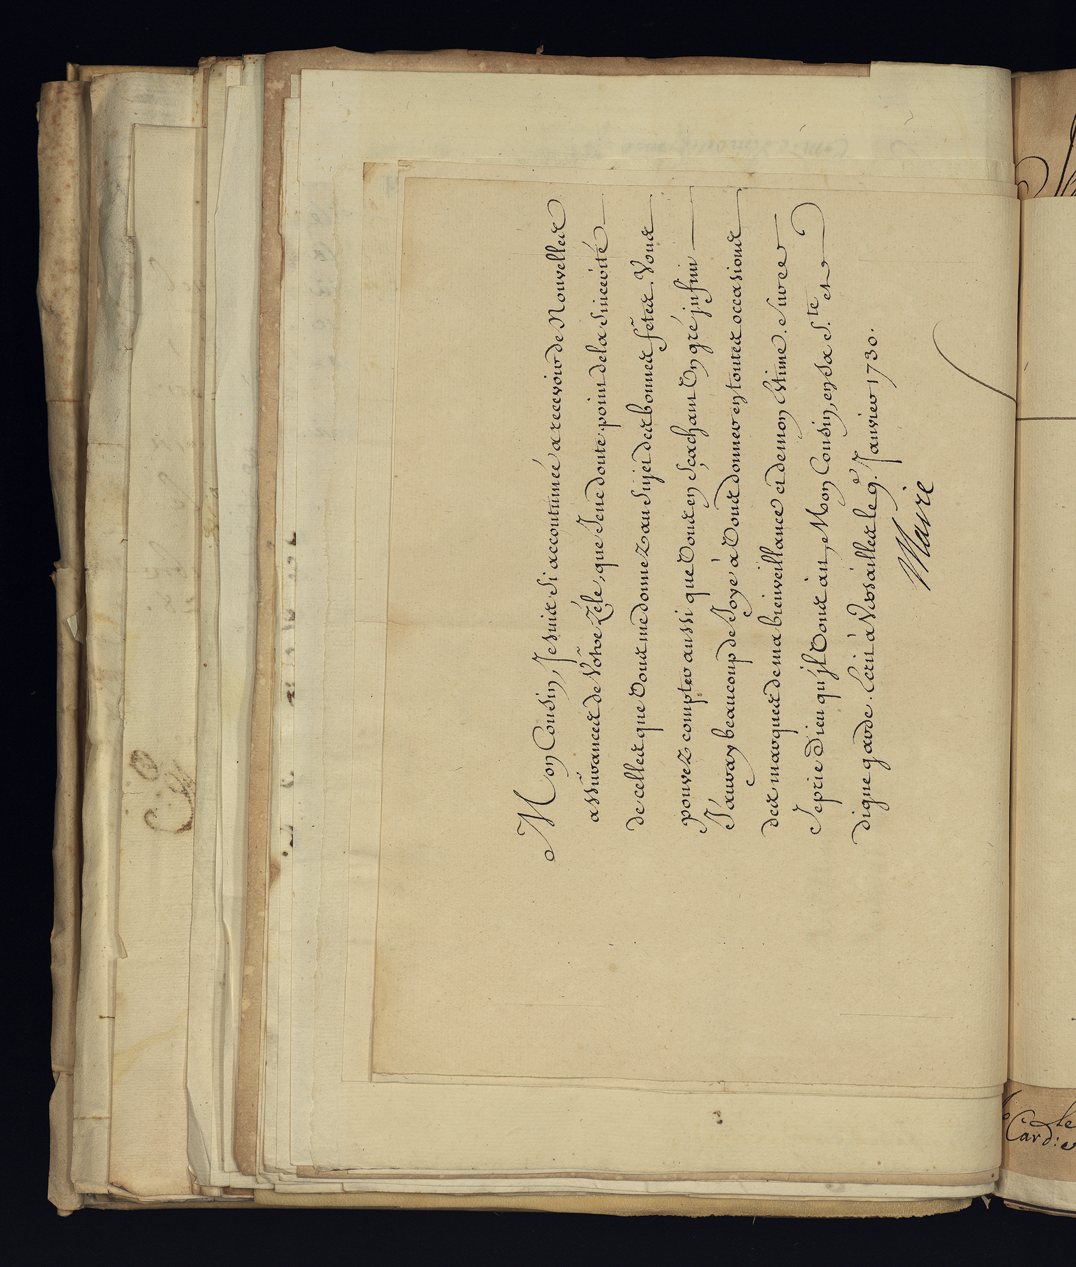 Mon Cousin, Je suis si accoutumée a recevoir de Nouvelles
assûrances de Vôtre Zéle, que Je ne doute point de la sincerité
de celles que Vous me donnez au sujet des bonnes fêtes. Vous
pouvez compter aussi que Vous en sçachant Un gré jnfini
J'auray beaucoup de Joye à Vous donner en toutes occasions
des marques de ma bienveillance et de mon estime. Sur ce
Je prie Dieu qu'jl Vous ait, Mon Cousin, en sa S.te et
digne garde. Ecrit à Versailles le 9.e Janvier 1730.
Marie
le
Card: